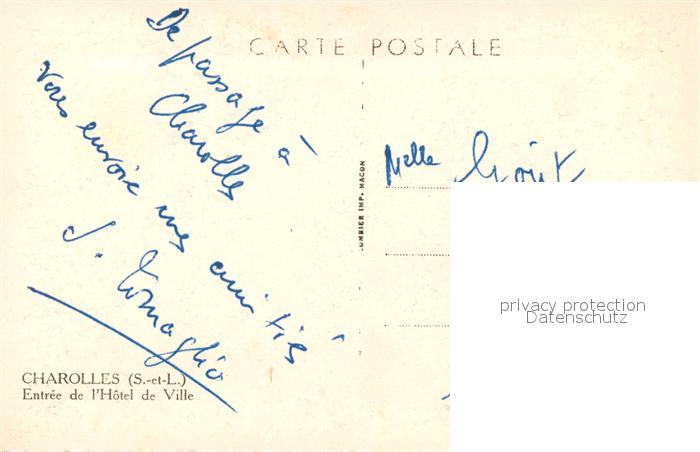 CARTE POSTALE
De passage à
Charolles
vous envoie mes amitiés
J. Tomaglio
CHAROLLES (S.-et-L.)
Entrée de l'Hôtel de Ville
COMBIER IMP. MACON
Melle
privacy protection
Datenschutz